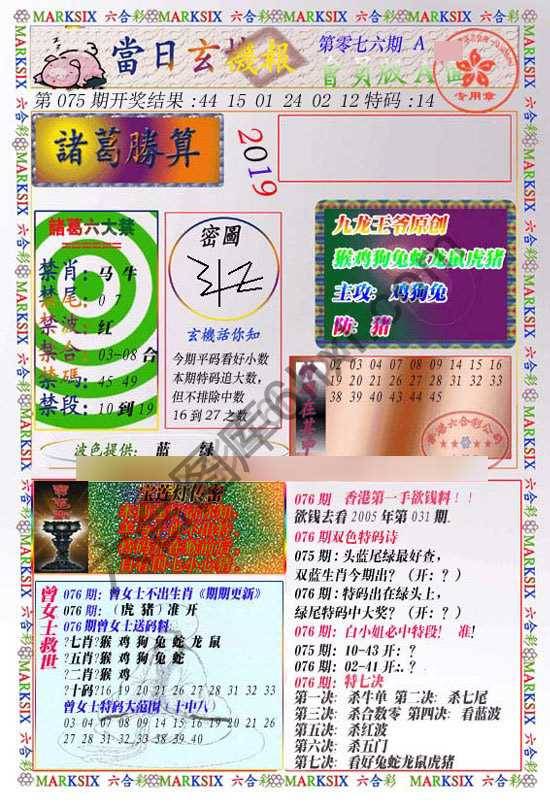 MARKSIX 六合彩 MARKSIX 六合彩 MARKSIX 六合彩 MARKSIX 六合彩
當日玄機報
第零七六期 A
會員版A面
专用章
第075期开奖结果:44 15 01 24 02 12特码:14
諸葛勝算
2019
諸葛六大禁
禁肖:马牛
禁尾:0 7
禁波:红
禁合:03-08合
禁碼:45 49
禁段:10到19
密圖
玄機話你知
今期平码看好小数
本期特码追大数,
但不排除中数
16到27之数
九龙王爷原创
猴鸡狗兔蛇龙鼠虎猪
主攻:鸡狗兔
防:猪
02 03 04 07 08 09 14 15 16
19 20 21 26 27 28 31 32 33
38 39 40 43 44 45
香港六合彩公司
波色提供: 蓝 绿
曾女士救世
076期:曾女士不出生肖《期期更新》
076期:(虎猪)准开
076期曾女士送码料:
?七肖?猴鸡狗兔蛇龙鼠
?五肖?猴鸡狗兔蛇
?二肖?猴鸡
?十码?16 19 20 21 26 27 28 31 32 33
曾女士特码大范围(十中八)
03 04 07 08 09 14 15 16 19 20 21 26
27 28 31 32 33 38 39 40
076期 香港第一手欲钱料!!
欲钱去看2005年第031期.
076期双色特码诗
075期:头蓝尾绿最好查,
双蓝生肖今期出?(开:?)
076期:特码出在绿头上,
绿尾特码中大奖?(开:?)
076期:白小姐必中特段! 准!
075期:10-43开:?
076期:02-41开:?
076期:特七决
第一决: 杀牛单 第二决: 杀七尾
第三决: 杀合数零 第四决: 看蓝波
第五决: 杀红波
第六决: 杀五门
第七决: 看好兔蛇龙鼠虎猪
MARKSIX 六合彩 MARKSIX 六合彩 MARKSIX 六合彩 MARKSIX 六合彩